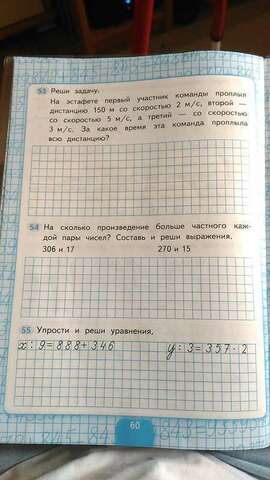 53 Реши задачу.
На эстафете первый участник команды проплыл
дистанцию 150 м со скоростью 2 м/с, второй —
со скоростью 5 м/с, а третий — со скоростью
3 м/с. За какое время эта команда проплыла
всю дистанцию?
54 На сколько произведение больше частного каж-
дой пары чисел? Составь и реши выражения.
306 и 17 270 и 15
55 Упрости и реши уравнения.
x : 9 = 888 + 346 y : 3 = 357 · 2
60